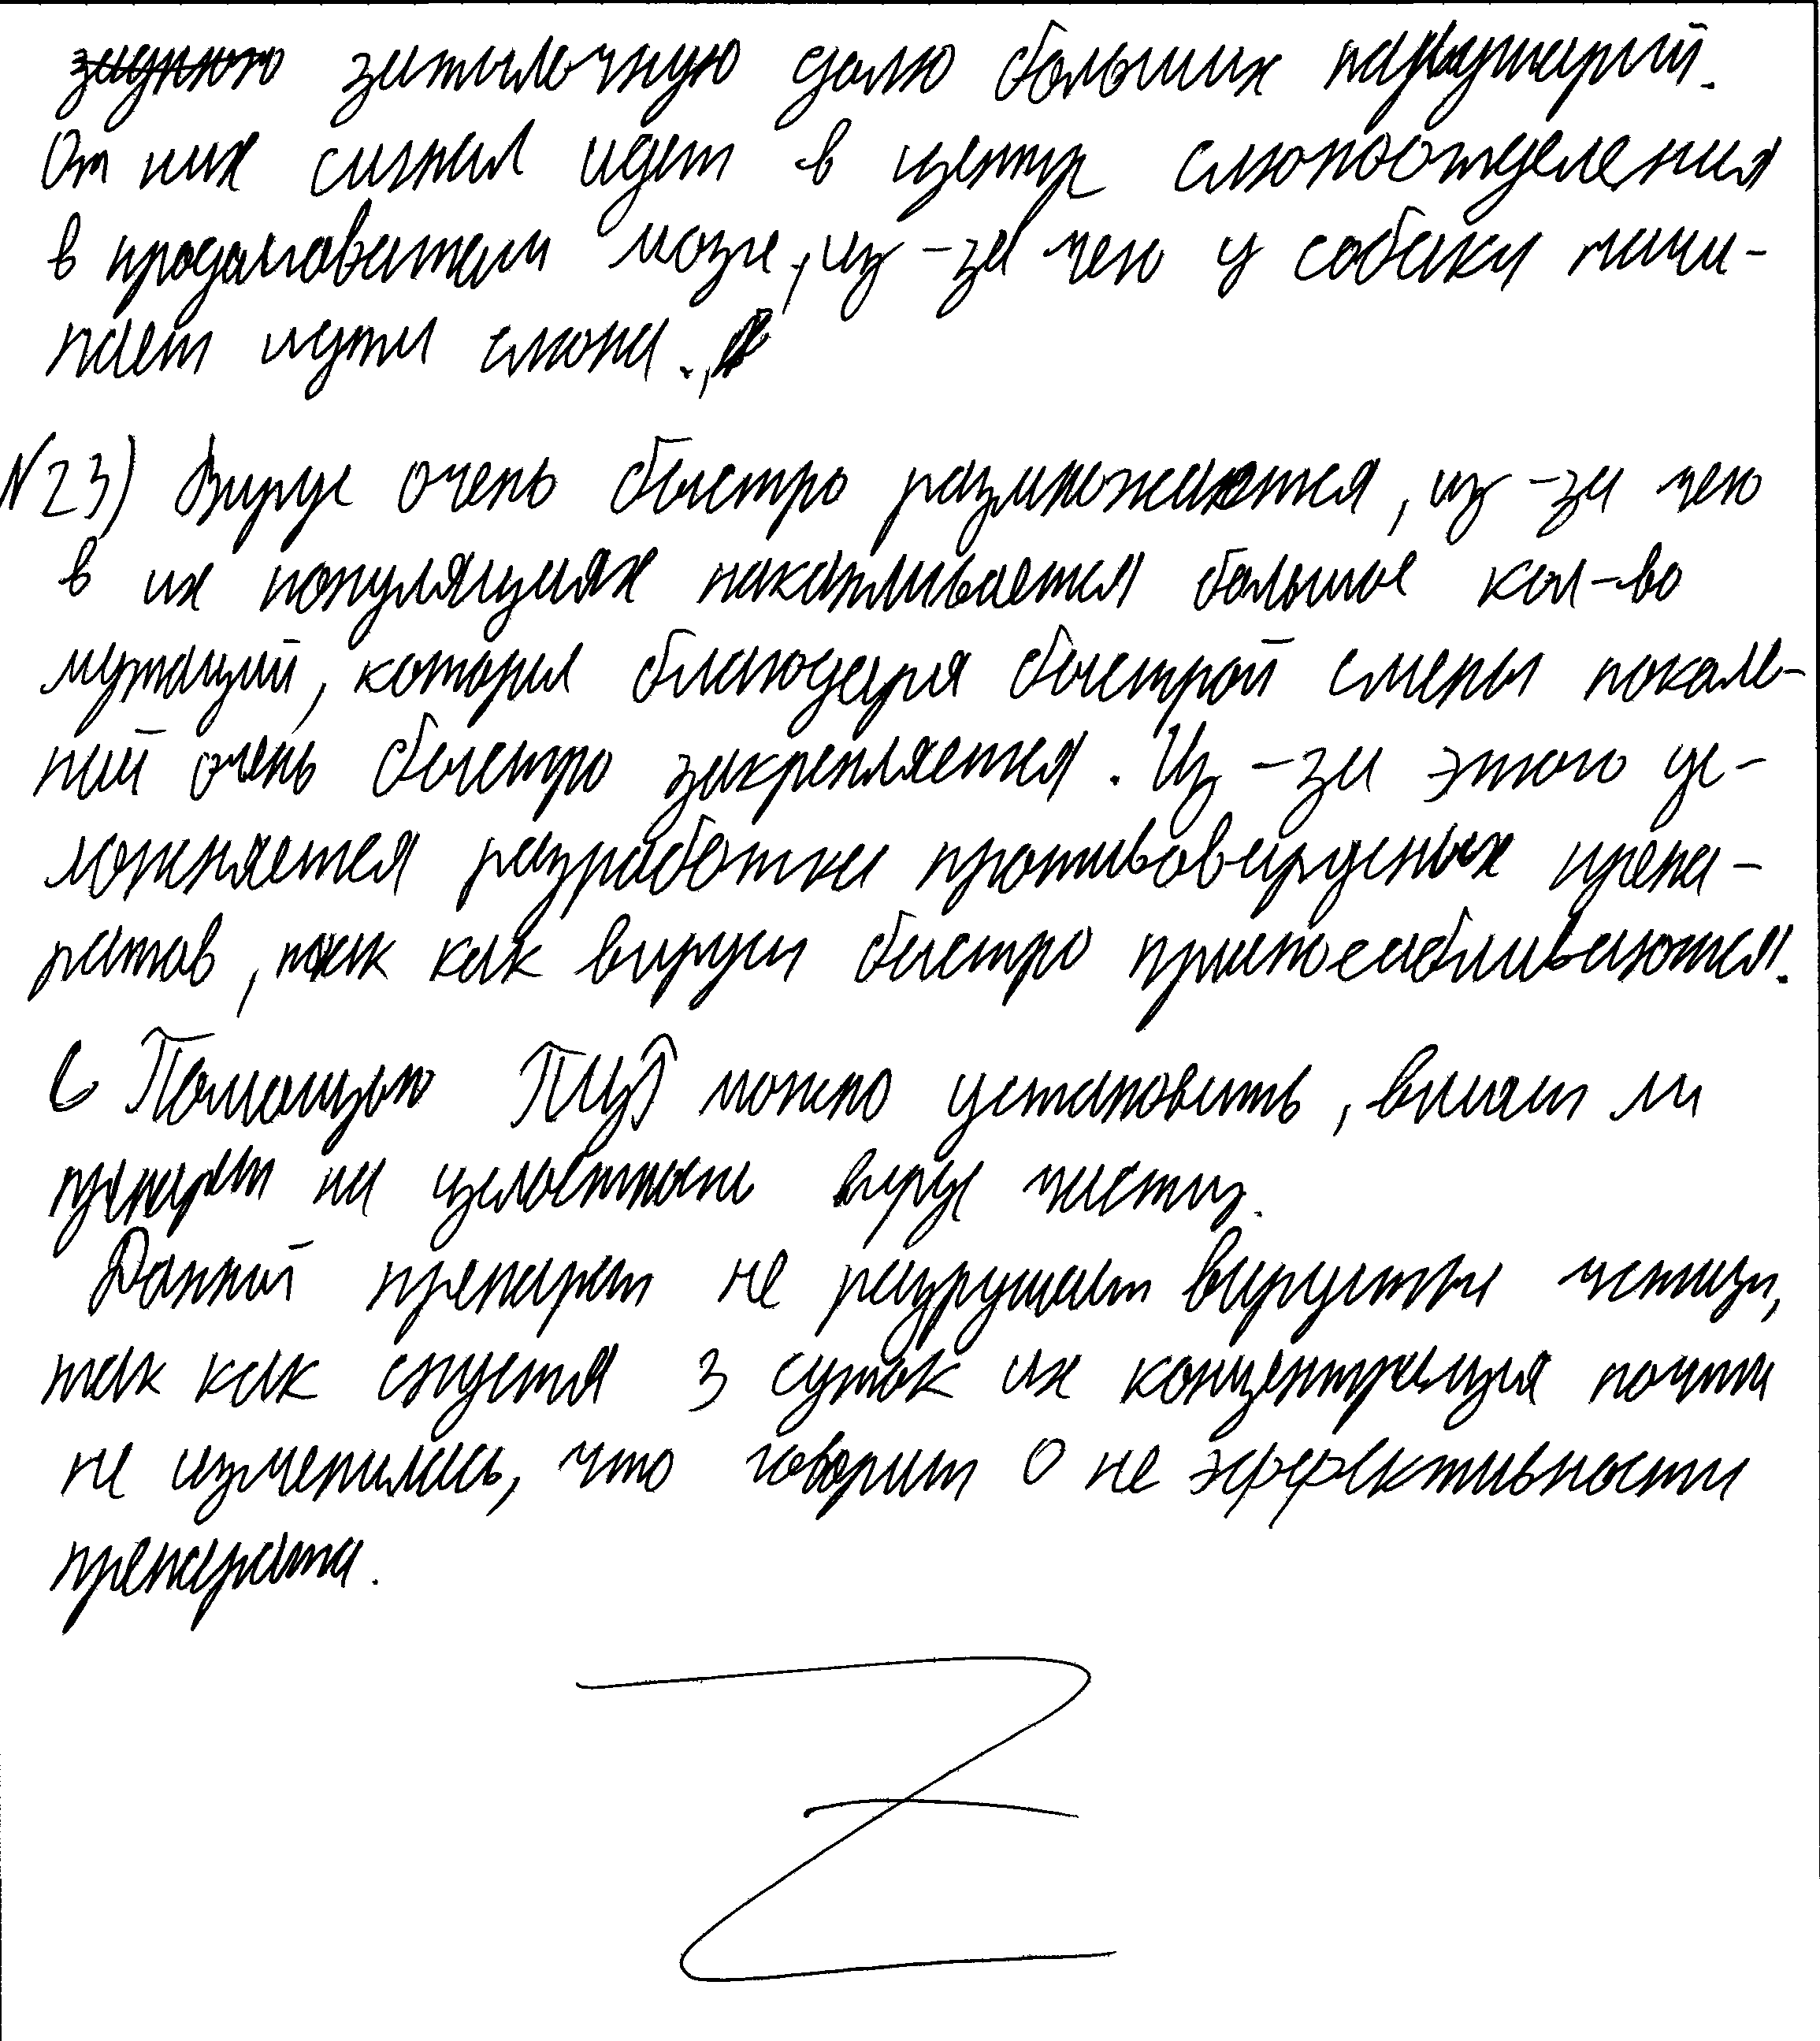 затылочную долю больших полушарий.
От них сигнал идет в центр слюноотделения
в продолговатом мозге, из-за чего у собаки начи-
нает идти слюна.
№23) Вирус очень быстро размножается, из-за чего
в их популяциях накапливается большое кол-во
мутаций, которые благодаря быстрой смены поколе-
ний очень быстро закрепляется. Из-за этого ус-
ложняется разработка противовирусных препа-
ратов, так как вирусы быстро приспосабливаются.
С Помощью ПЦР можно установить, влияет ли
препарат на целостность вирус частиц.
Данный препарат не разрушает вирусные частицы,
так как спустя 3 суток их концентрация почти
не изменилась, что говорит о не эффективности
препарата.